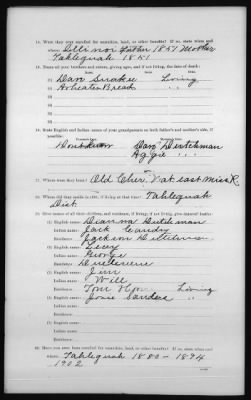 14. Were they ever enrolled for annuities, land, or other benefits? If so, state when and
where. Illinois Father 1851 Mother
Tahlequah 1851
15. Name all your brothers and sisters, giving ages, and if not living, the date of death:
(1) Dave Snakee Living
(2) Wheaten Bread "
(3)
(4)
(5)
(6)
16. State English and Indian names of your grandparents on both father's and mother's side, if
possible:
Dont know Dan Dutchman
Aggie "
17. Where were they born? Old Cher. Nat. east Miss. R.
18. Where did they reside in 1851, if living at that time? Tahlequah
Dist.
19. Give names of all their children, and residence, if living; if not living, give
(1) English name: Dianna Dutchman
Indian name: Jack Candy
Residence: Jackson Dutchman
(2) English name: Lucy
Indian name: George
Residence:
(3) English name: Jim
Indian name: Will
Residence: Tom Living
(4) English name: Sanders "
Indian name:
Residence:
20. Have you ever been enrolled for annuities, land, or other benefits? If so, state when and
where. Tahlequah 1880 - 1894
1902